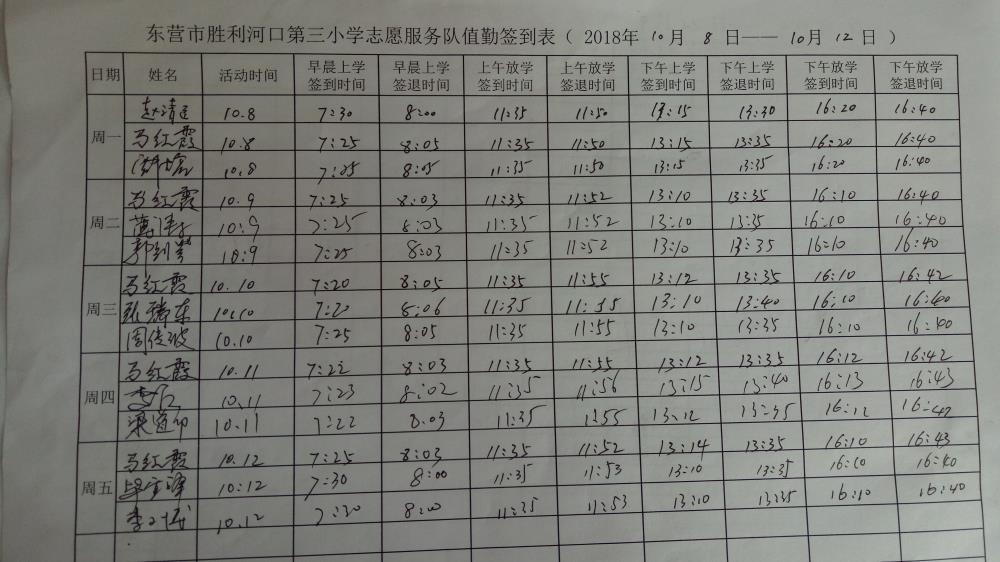 东营市胜利河口第三小学志愿服务队值勤签到表（2018年 10月 8 日——10月 12 日）
日期 姓名 活动时间 早晨上学签到时间 早晨上学签退时间 上午放学签到时间 上午放学签退时间 下午上学签到时间 下午上学签退时间 下午放学签到时间 下午放学签退时间
周一 10.8 7:30 8:00 11:35 11:50 13:15 13:30 16:20 16:40
马红霞 10.8 7:25 8:05 11:35 11:50 13:15 13:35 16:20 16:40
10.8 7:25 8:05 11:35 11:50 13:15 13:35 16:20 16:40
周二 马红霞 10.9 7:25 8:03 11:35 11:52 13:10 13:35 16:10 16:40
10.9 7:25 8:03 11:35 11:52 13:10 13:35 16:10 16:40
10.9 7:25 8:03 11:35 11:52 13:10 13:35 16:10 16:40
周三 马红霞 10.10 7:20 8:05 11:35 11:55 13:12 13:35 16:10 16:42
张瑞东 10.10 7:20 8:06 11:35 11:55 13:10 13:40 16:10 16:40
周俊波 10.10 7:25 8:05 11:35 11:55 13:10 13:35 16:10 16:40
周四 马红霞 10.11 7:22 8:03 11:35 11:55 13:12 13:35 16:12 16:42
10.11 7:23 8:02 11:35 11:56 13:15 13:40 16:13 16:43
梁道印 10.11 7:22 8.03 11:35 11:55 13:12 13:35 16:12 16:42
周五 马红霞 10.12 7:25 8:03 11:35 11:52 13:14 13:35 16:10 16:43
10:12 7:30 8:00 11:35 11:53 13:10 13:35 16:10 16:40
10.12 7:30 8:00 11:35 11:53 13:10 13:35 16:10 16:40